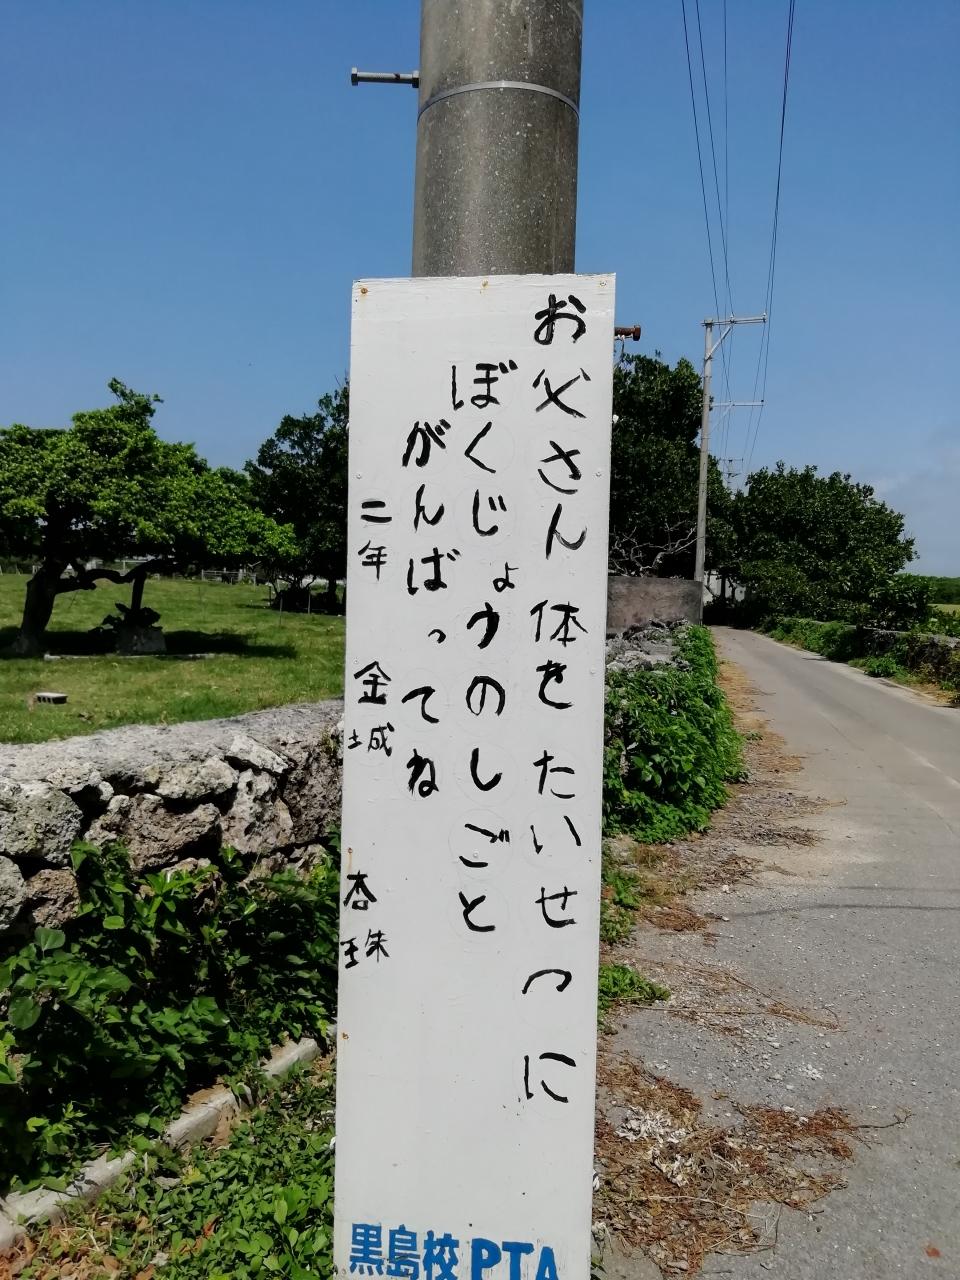 お父さん 体をたいせつに
ぼくじょうのしごと
がんばってね
二年 金城 杏珠
黒島校PTA